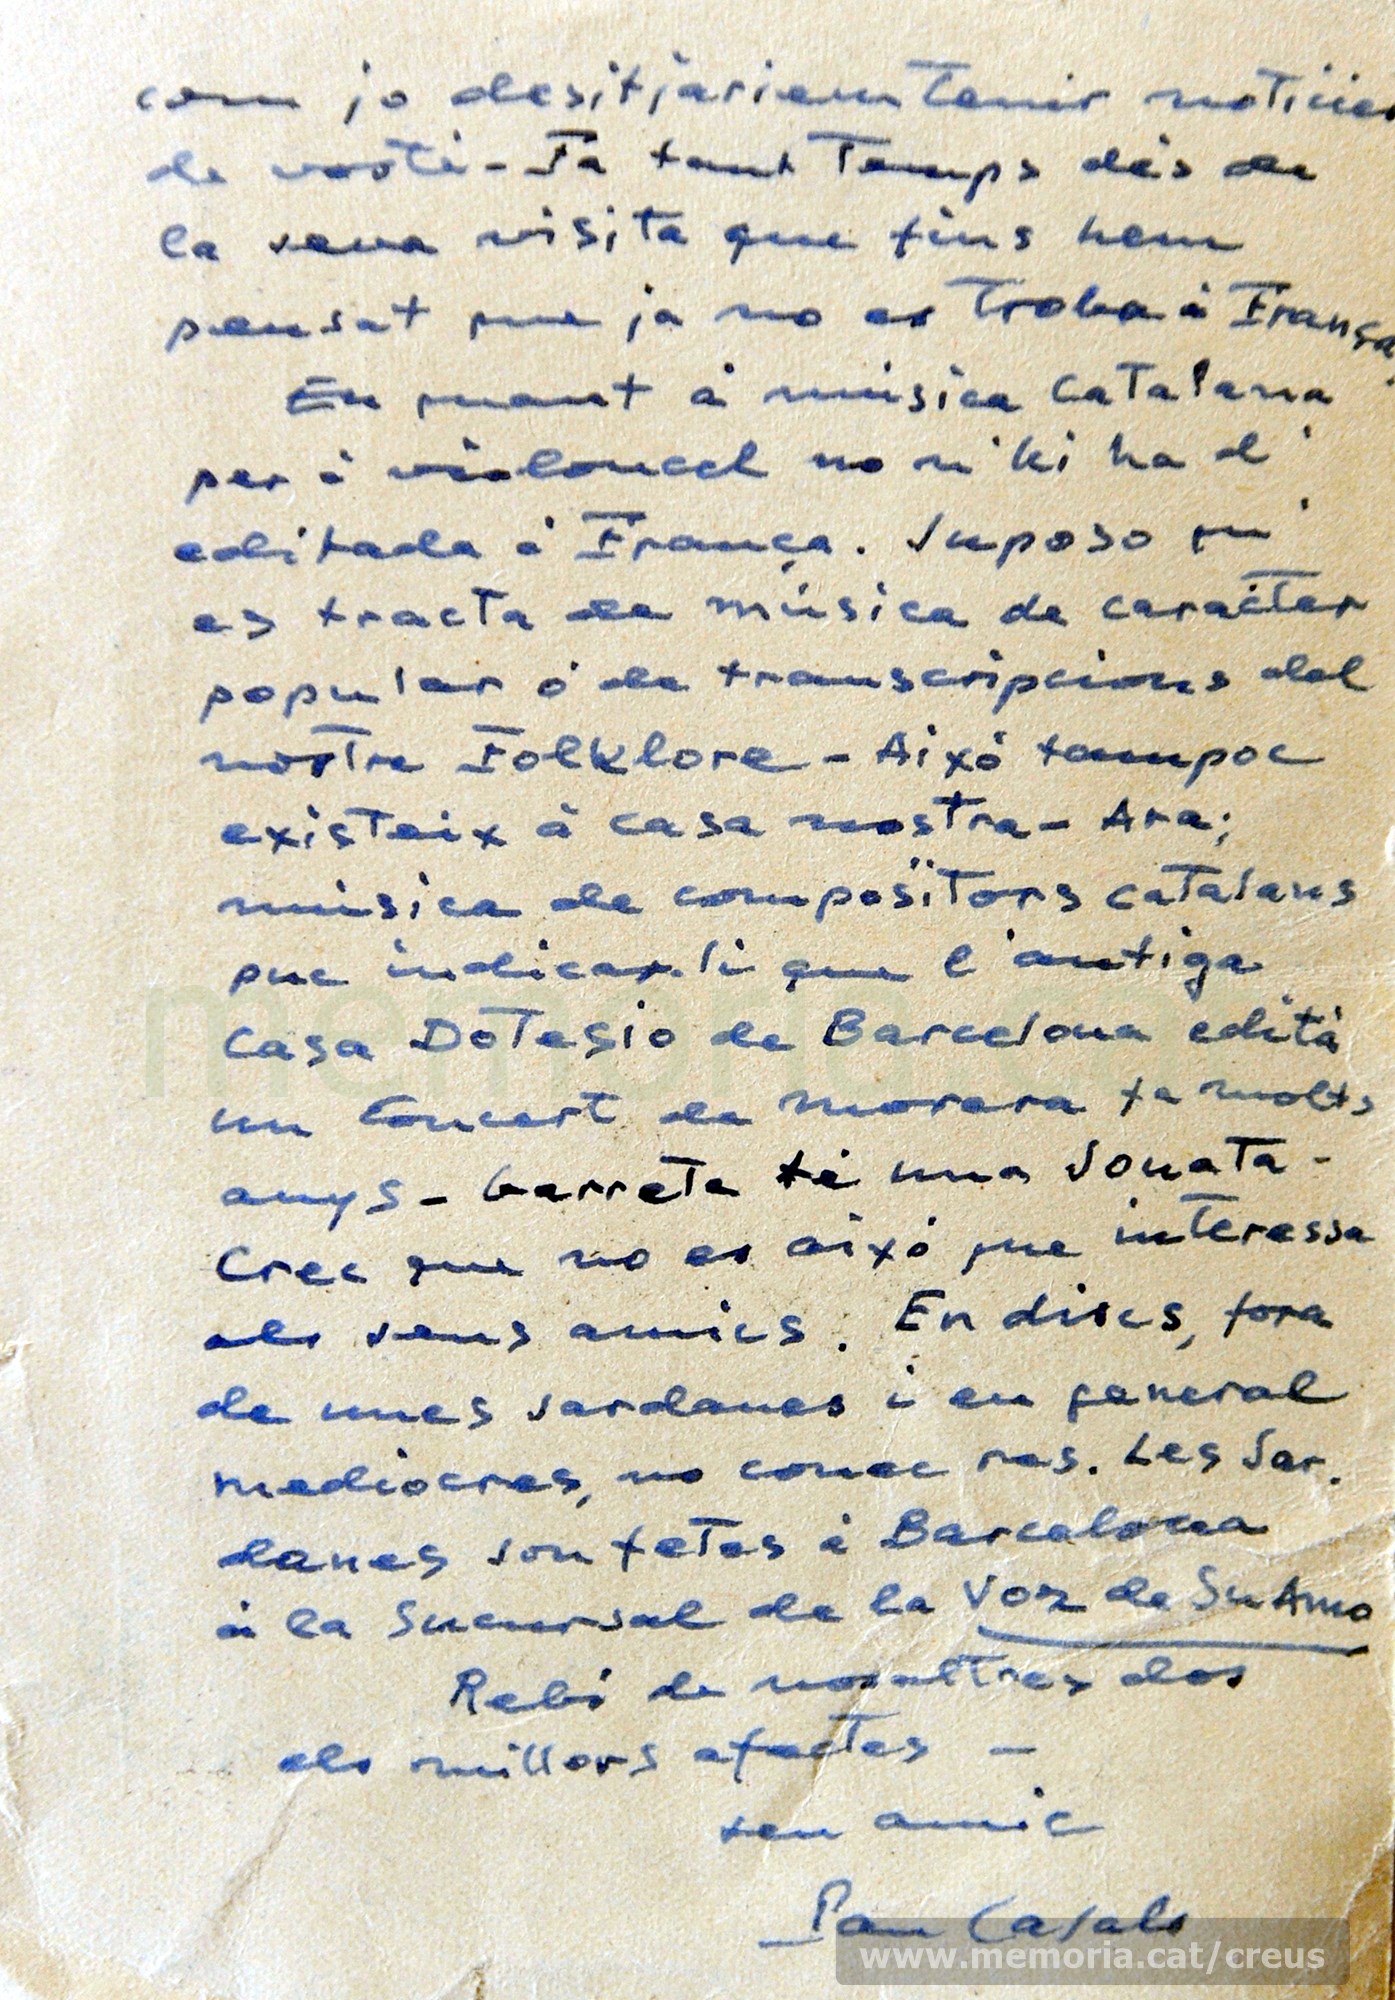 com jo desitjariem tenir noticies
de vostè - Fa tant temps dés de
la seva visita que fins hem
pensat que ja no es troba à França,
En quant à música catalana
per à violoncel no n'hi ha d'
editada à França. Suposo qu'
es tracta de música de caràcter
popular ó de transcripcions del
nostre Folklore - Aixó tampoc
existeix à casa nostra - Ara;
música de compositors catalans
puc indicar-li que l'antiga
casa Dotesio de Barcelona edità
un Concert de Morera fa molts
anys - Garreta té una Sonata -
Crec que no es aixó que interessa
als seus amics. En discs, fora
de unes sardanes i en general
mediocres, no conec res. Les Sar-
danes son fetes à Barcelona
à la Sucursal de la Voz de Su Amo
Rebi de nosaltres dos
els millors afectes -
seu amic
Pau Casals
memoria.cat
www.memoria.cat/creus